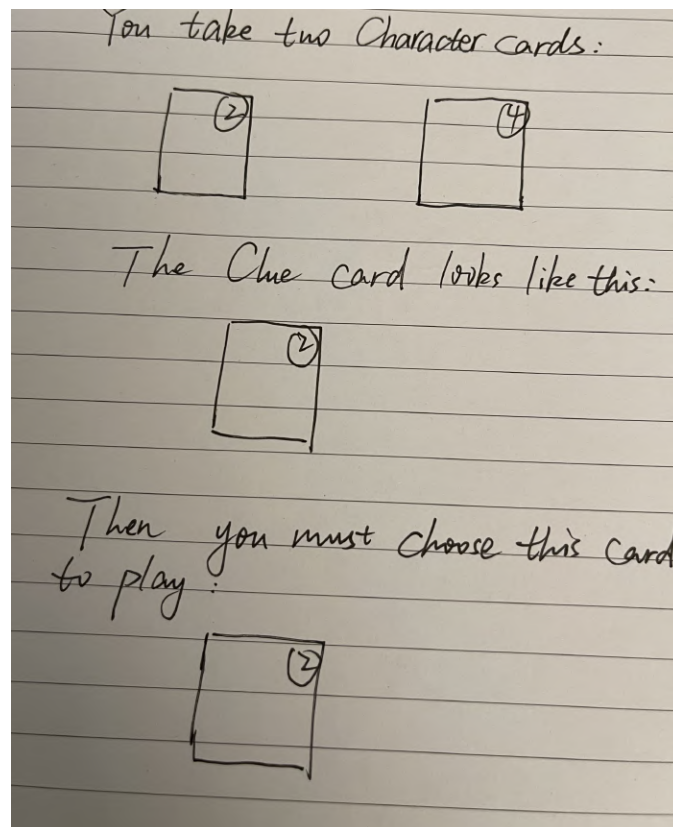 You take two Character cards:
② ④
The Clue card looks like this:
②
Then you must choose this card
to play:
②